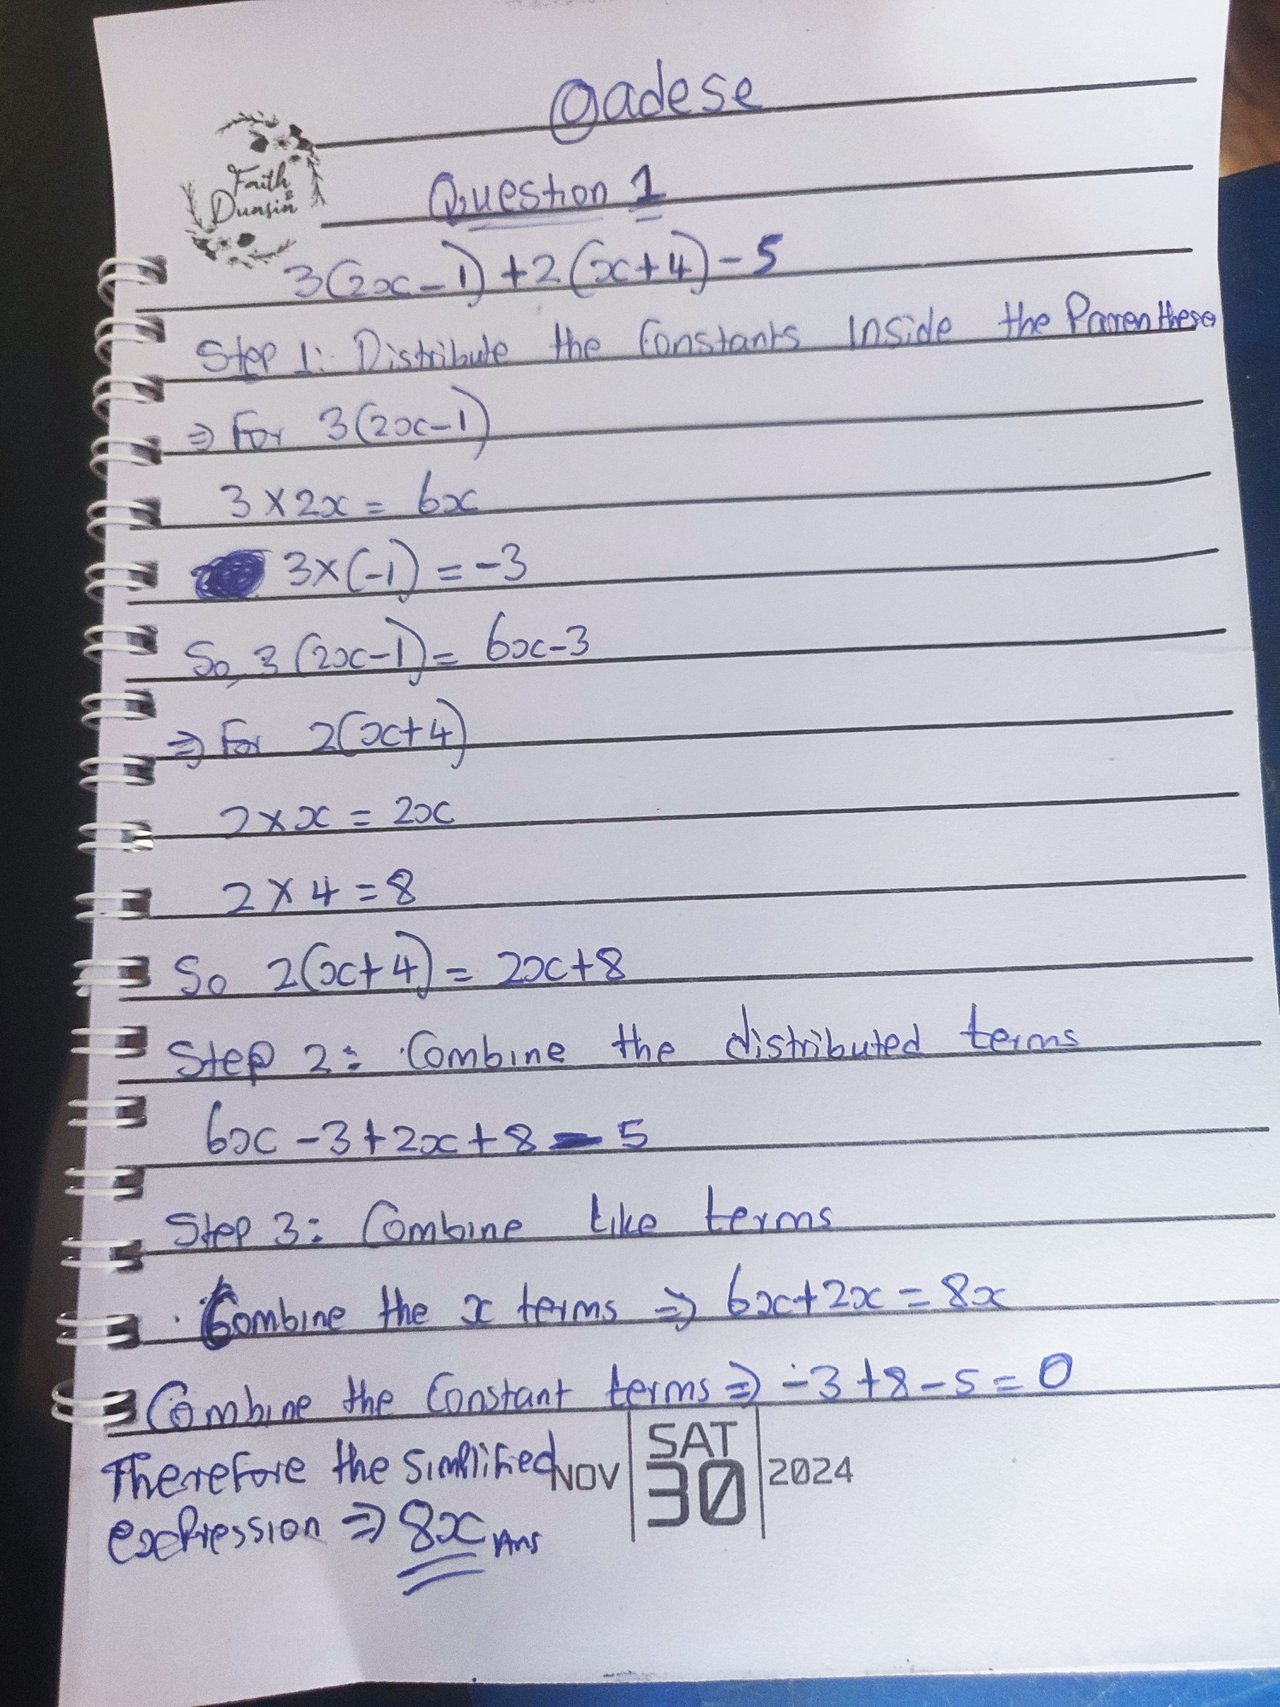 @adese
Faith
&
Dunsin
Question 1
3(2x-1)+2(x+4)-5
Step 1: Distribute the Constants Inside the Parenthese
⇒ For 3(2x-1)
3×2x = 6x
3×(-1) = -3
So, 3(2x-1) = 6x-3
⇒ For 2(x+4)
2×x = 2x
2×4=8
So 2(x+4) = 2x+8
Step 2: Combine the distributed terms
6x-3+2x+8-5
Step 3: Combine like terms
Combine the x terms ⇒ 6x+2x=8x
Combine the Constant terms ⇒ -3+8-5=0
Therefore the simplified
expression ⇒ 8x Ans
NOV SAT 30 2024